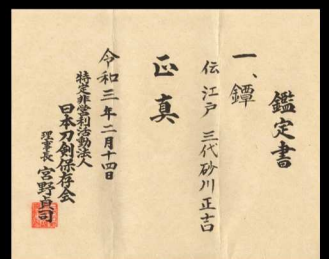 鑑定書
一、鐔
伝 江戸 三代砂川正吉
正真
令和三年二月十四日
特定非営利活動法人
日本刀剣保存会
理事長 宮野貞司